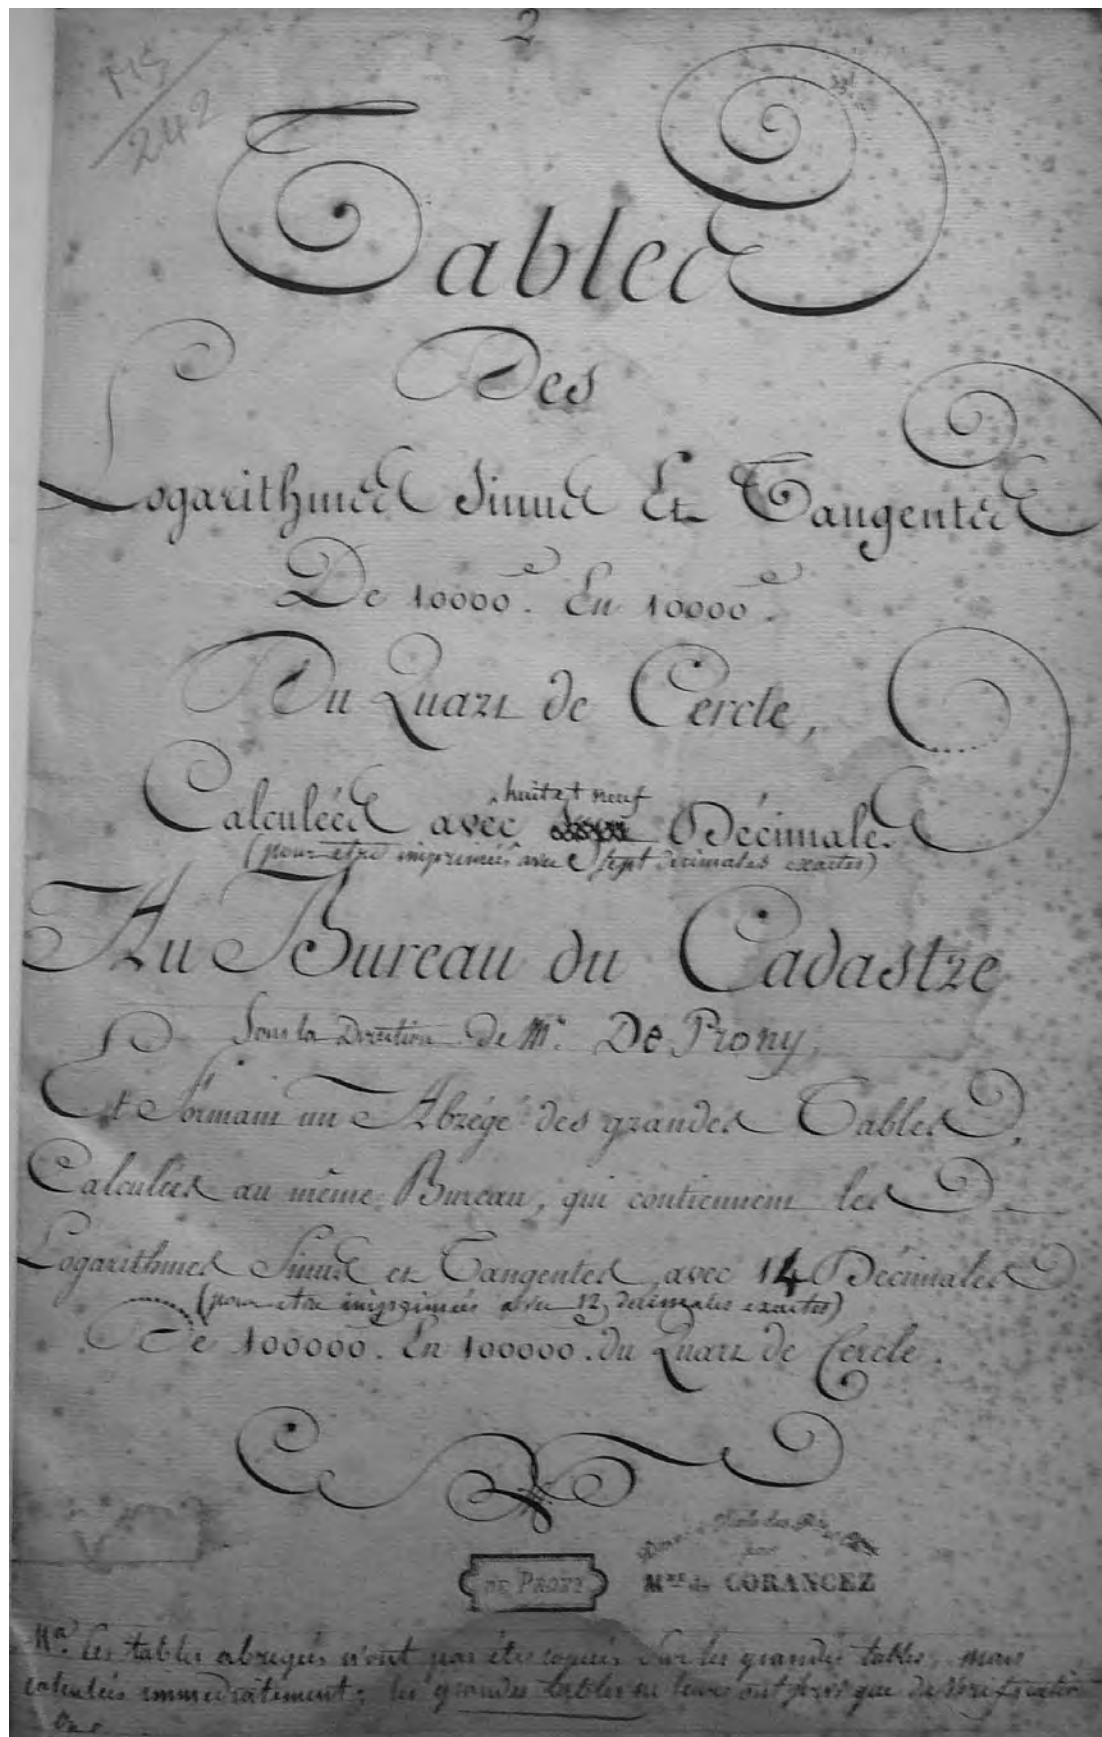 2
MS
242
Tables
Des
Logarithmes Sinus Et Tangentes
De 10000.e En 10000.e
Du Quart de Cercle,
huit et neuf
Calculées avec Décimales
(pour etre imprimées avec sept décimales exactes)
Au Bureau du Cadastre
Sous la Direction de Mr. De Prony,
Et Formant un Abrégé des grandes Tables,
Calculées au même Bureau, qui contiennent les
Logarithmes Sinus et Tangentes, avec 14 Décimales
(pour etre imprimées avec 12 décimales exactes)
De 100000. En 100000. du Quart de Cercle.
Ecole des
par
DE PRONY Mme de CORANCEZ
Na. les tables abregées n'ont pas étés copiées sur les grandes tables, mais
calculées immediatement; les grandes tables ne leurs ont servi que de verification